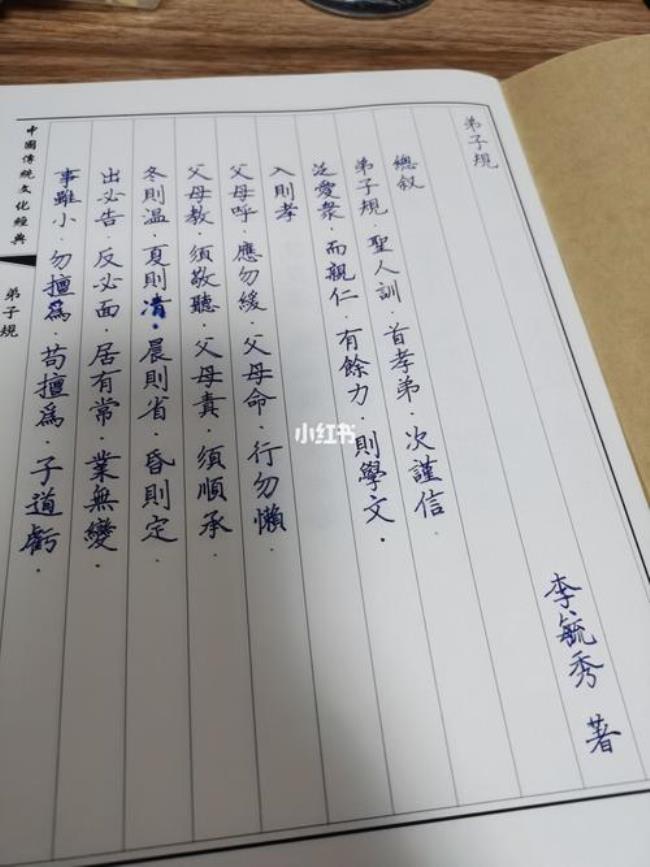 弟子規
李毓秀 著
總叙
弟子規．聖人訓．首孝弟．次謹信．
泛愛衆．而親仁．有餘力．則學文．
入則孝
父母呼．應勿緩．父母命．行勿懶．
父母教．須敬聽．父母責．須順承．
冬則温．夏則清．晨則省．昏則定．
出必告．反必面．居有常．業無變．
事雖小．勿擅爲．苟擅爲．子道虧．
中國傳統文化經典
弟子規
小红书